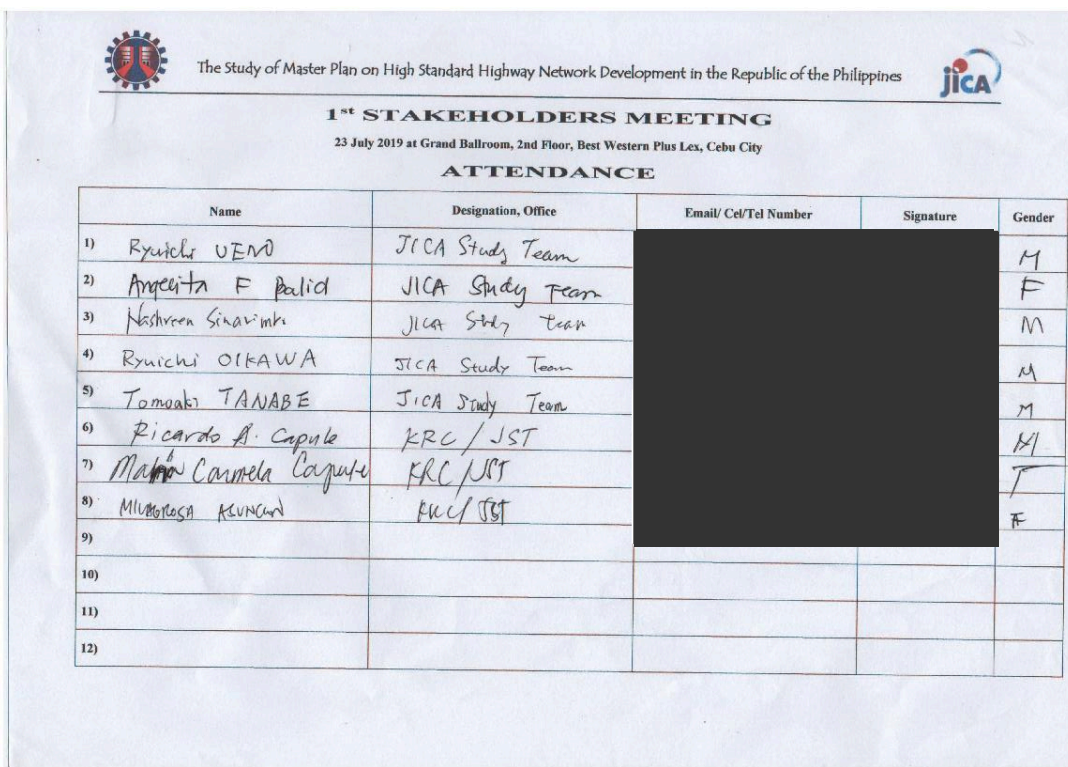 The Study of Master Plan on High Standard Highway Network Development in the Republic of the Philippines
jICA
1st STAKEHOLDERS MEETING
23 July 2019 at Grand Ballroom, 2nd Floor, Best Western Plus Lex, Cebu City
ATTENDANCE
Name Designation, Office Email/ Cel/Tel Number Signature Gender
1) Ryuichi UENO JICA Study Team M
2) Angelita F Balid JICA Study Team F
3) Nashreen Sinarimbo JICA Study Team M
4) Ryuichi OIKAWA JICA Study Team M
5) Tomoaki TANABE JICA Study Team M
6) Ricardo A. Capule KRC / JST M
7) Carmela Capule KRC/JST F
8) MILAGROSA ASUNCION KRC/ JST F
9)
10)
11)
12)